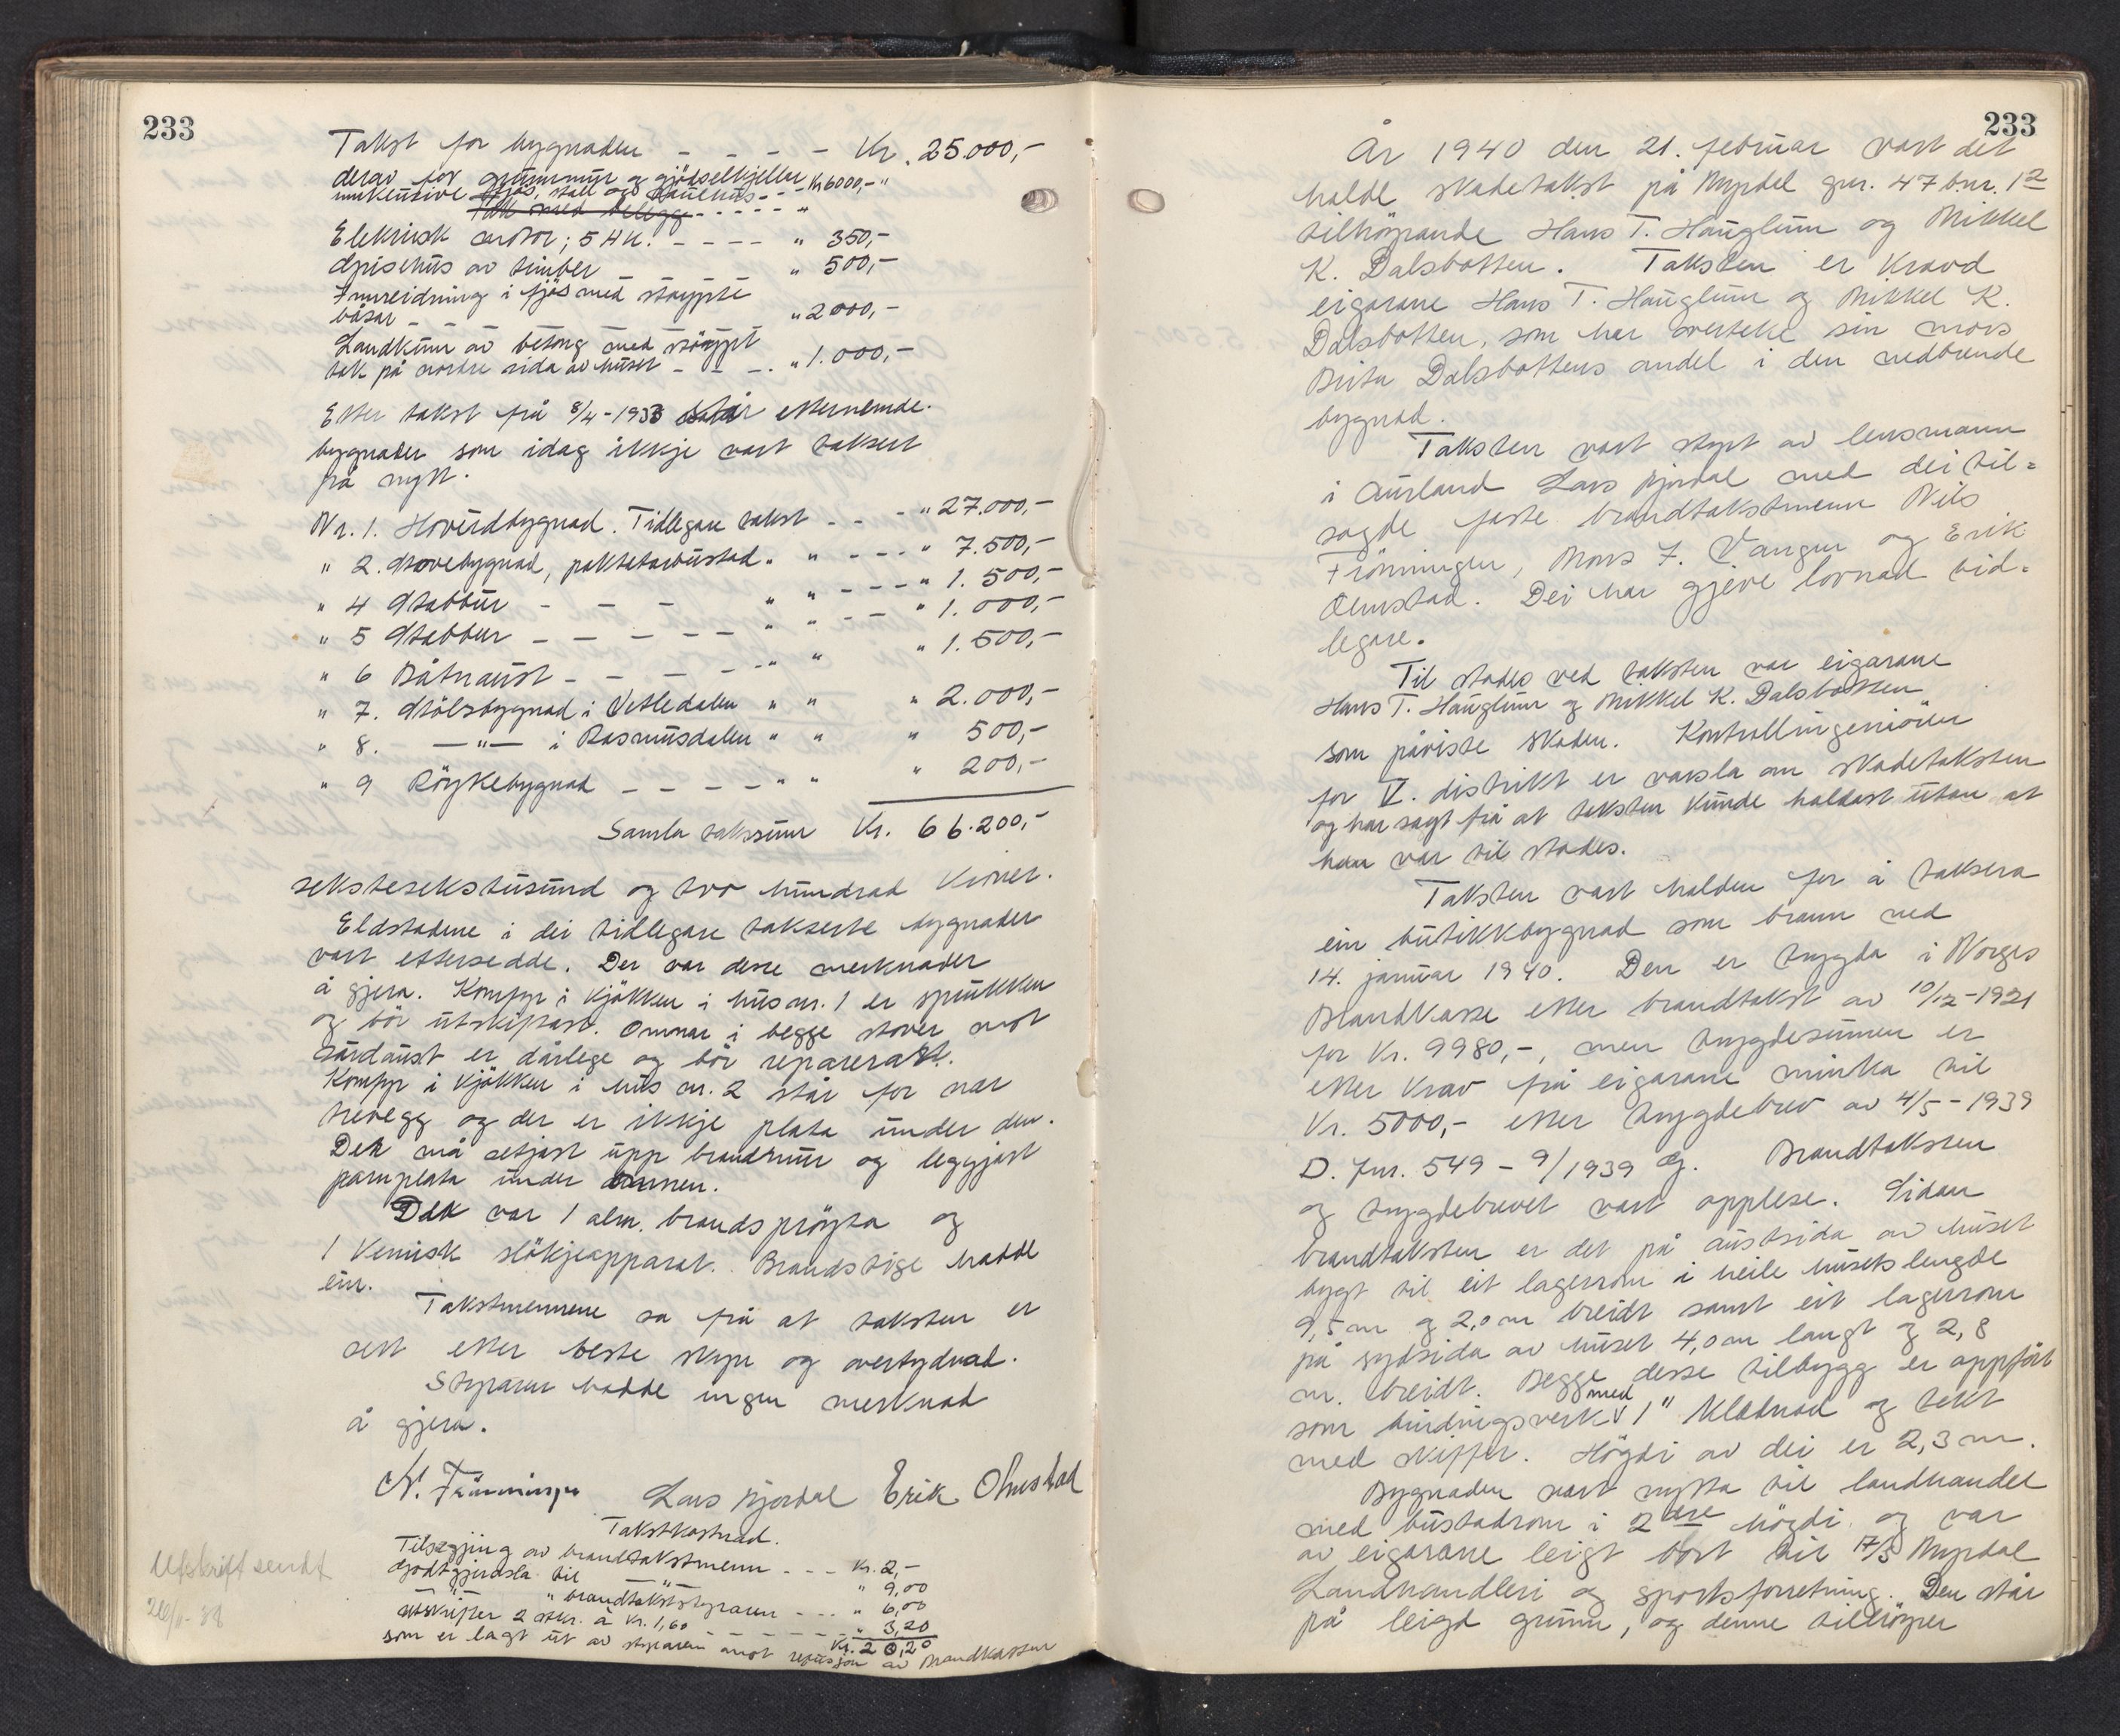 233
Takst for bygnaden - - - - Kr. 25.000,-
derav for grunnmur og gjødselkjellar
innkensive fjøs, stall og - - Kr 6000,- "
tak med belegg - - - - - "
Elektrisk motor; 5 HK. - - - - " 350,-
Grisehus av timber - - - - " 500,-
Innreidning i fjøs med støypte
båsar - - - - - " 2000,-
Landkum av betong med støypt
tak på nordre sida av huset - - - . " 1.000,-
Etter takst frå 8/4-1933 står etternemde
bygnader som idag ikkje vart taksert
på nytt.
Nr. 1. Hovudbygnad. Tidlegare takst - - - " 27.000,-
" 2. Stovebygnad, paktarbustad. " - - - - " 7.500,-
" 4 Stabbur - - - " " - - - - " 1.500,-
" 5 Stabbur - - - - - " " - - - " 1.000,-
" 6 Båtnaust - - - - - " " " 1.500,-
" 7. Stølsbygnad i Vetledalen " " " 2.000,-
" 8. - " - i Rasmusdalen " " " 500,-
" 9 Røykebygnad - - - - " " " 200,-
Samla takssum Kr. 66.200,-
sekstesekstusund og two hundrad kroner.
Eldstadene i dei tidlegare takserte bygnader
vart ettersedde. Der var desse merknader
å gjera. Komfyr i kjøkken i hus nr. 1 er sprukken
og bør utskiftast. Omnar i begge stover mot
nordaust er dårlege og bør reparerast.
Komfyr i kjøkken i hus nr. 2 står for nær
trevegg og der er ikkje plata under den.
Det må setjast upp brandmur og leggjast
jarnplata under omnen.
Det var 1 alm. brandsprøyta og
1 kemisk sløkjeapparat. Brandstige hadde
ein.
Takstmennene sa frå at taksten er
sett etter beste skyn og overtydnad.
Styraren hadde ingen merknad
å gjera.
N. Frønningen Lars Njordal Erik Ohnstad
Takstkostnad.
Tilsegjing av brandtakstmenn - - - Kr. 2,-
Godtgjersla til " " 9,00
" brandtakststyraren - - - " 6,00
utskrifter 2 stkr. à Kr. 1,60 - - - - - - " 3,20
Kr. 20,20
som er lagt ut av styraren mot refusjon av Brandkassen
Utskrift sendt
26/11-38
233
År 1940 den 21. februar vart det
halde skadetakst på Myrdal gnr. 47 bnr. 12
tilhøyrande Hans T. Hauglum og Mikkel
K. Dalsbotten. Taksten er kravd
eigarane Hans T. Hauglum og Mikkel K.
Dalsbotten, som har overteke sin mors
Brita Dalsbottens andel i den nedbrende
bygnad.
Taksten vart styrt av lensmann
i Aurland Lars Njordal med dei til=
sagde faste brandtakstmenn Nils
Frønningen, Mons J. Vangen og Erik
Ohnstad. Dei har gjeve lovnad tid=
legare.
Til stades ved taksten var eigarane
Hans T. Hauglum og Mikkel K. Dalsbotten
som påviste skaden. Kontrollingeniøren
for V. distrikt er varsla om skadetaksten
og har sagt frå at taksten kunde haldast utan at
han var til stades.
Taksten vart halden for å taksera
ein butikkbygnad som brann ned
14. januar 1940. Den er trygda i Norges
Brandkasse etter brandtakst av 10/12-1921
for Kr. 9980,-, men trygdesummen er
etter krav frå eigarane minka til
Kr. 5000,- etter trygdebrev av 4/5-1939
D. Jnr. 549 - 9/1939 Brandtaksten
og trygdebrevet vart opplese. Sidan
brandtaksten er det på austsida av huset
bygt til eit lagerrom i heile husets lengde
9,5 m og 2,0 m breidt samt eit lagerrom
på sydsida av huset 4,0 m langt og 2,8
m. breidt. Begge desse tilbygg er oppført
som bindingsverk med 1" klednad og tekt
med skiffer. Høgdi av dei er 2,3 m.
Bygnaden vart nytta til landhandel
med bustadrom i 2dre høgdi og var
av eigarane leigt bort til Myrdal
Landhandleri og sportsforretning. Den står
på leigd grunn, og denne tilhøyrer